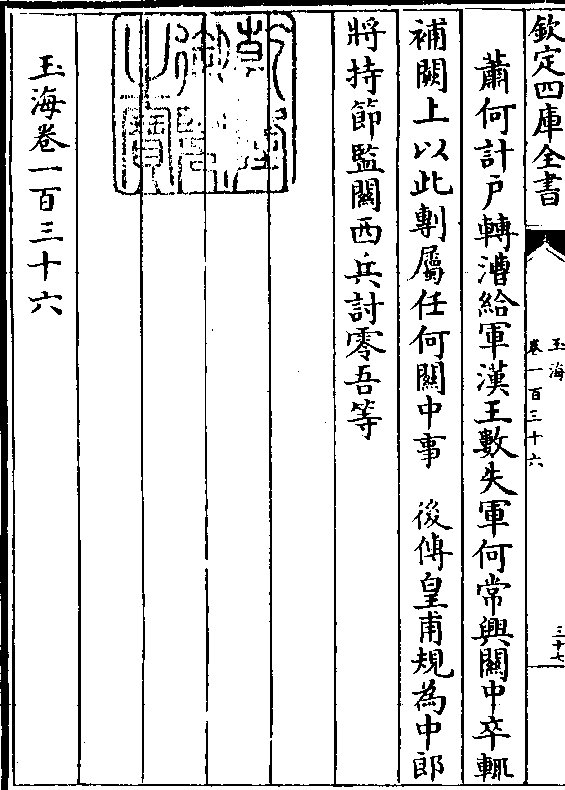 欽定四庫全書
玉海
卷一百三十六
三十七
蕭何計戶轉漕給軍漢王數失軍何常興關中卒輒
補闕上以此剸屬任何關中事　後傳皇甫規為中郎
將持節監關西兵討零吾等
乾隆御覽之寶
玉海卷一百三十六